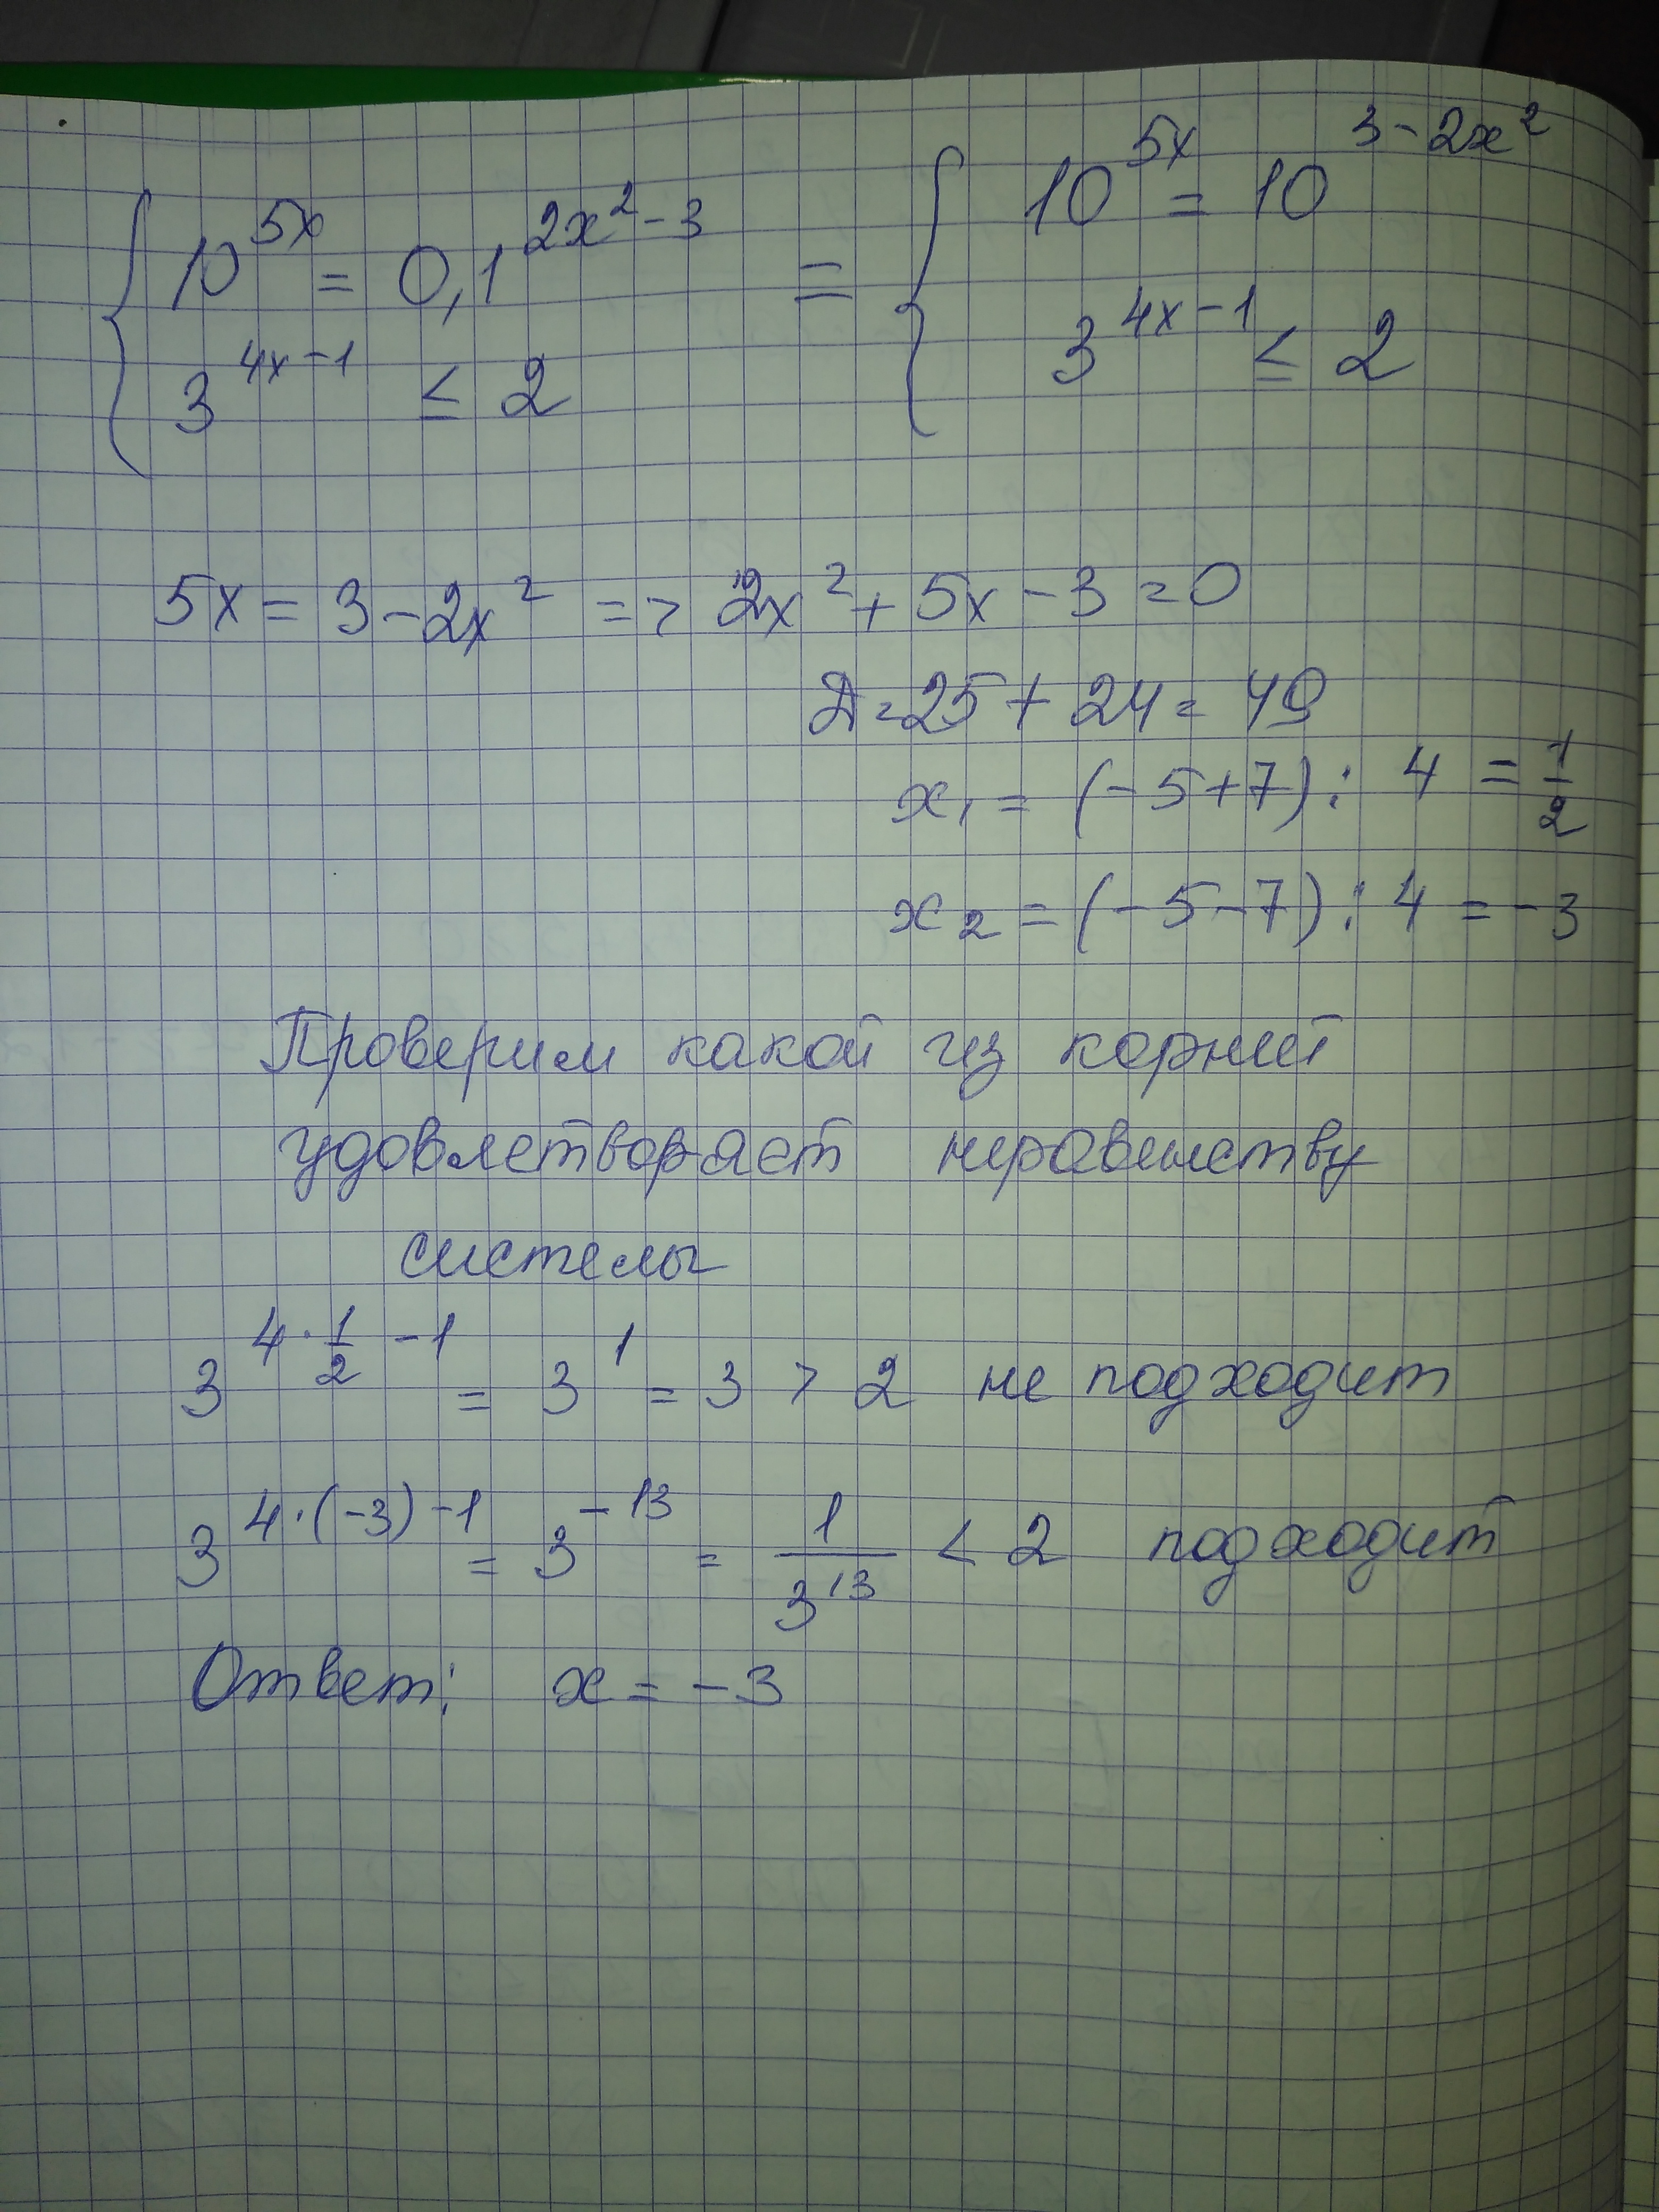 { 10^5x = 0,1^2x²-3 = { 10^5x = 10^3-2x²
3^4x-1 ≤ 2 3^4x-1 ≤ 2
5x = 3-2x² => 2x² + 5x - 3 = 0
Д = 25 + 24 = 49
x₁ = (-5+7) : 4 = 1/2
x₂ = (-5-7) : 4 = -3
Проверим какой из корней
удовлетворяет неравенству
системы
3^4·1/2 -1 = 3^1 = 3 > 2 не подходит
3^4·(-3)-1 = 3^-13 = 1/3^13 < 2 подходит
Ответ: x = -3